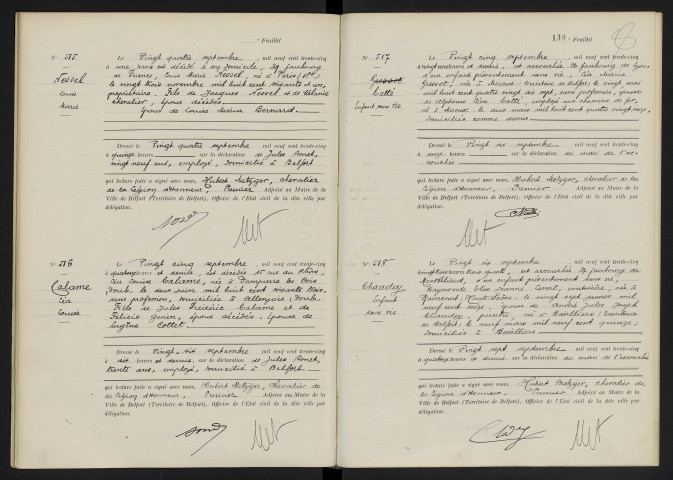 Feuillet
N° 515
Nessel
Louis
Marie
Le Vingt quatre septembre mil neuf cent trente-cinq
à une heure est décédé à son domicile, 39 faubourg
de France, Louis Marie Nessel, né à Paris
le vingt trois novembre mil huit cent soixante et un,
propriétaire. Fils de Jacques Nessel et de Mélanie
Chevalier, époux décédés.
Époux de Louise Maria Bernard.
Dressé le Vingt quatre septembre mil neuf cent trente-cinq
à quinze heures sur la déclaration de Jules Bonet,
vingt neuf ans, employé, domicilié à Belfort
qui lecture faite a signé avec nous, Hubert Metzger, chevalier
de la Légion d'Honneur, Premier Adjoint au Maire de la
Ville de Belfort (Territoire de Belfort), Officier de l'Etat civil de la dite ville par
délégation.
N° 516
Calame
Léa
Louise
Le Vingt cinq septembre mil neuf cent trente-cinq
à quatorze heures et demie, est décédée 15 rue du Rhône,
Léa Louise Calame, née à Dampierre les Bois
Doubs, le deux juin mil huit cent soixante trois,
sans profession, domiciliée à Allenjoie (Doubs).
Fille de Jules Frédéric Calame et de
Félicie Genin, époux décédés. Épouse de
Eugène Cottet.
Dressé le Vingt-six septembre mil neuf cent trente-cinq
à dix heures et demie, sur la déclaration de Jules Bonet,
trente ans, employé, domicilié à Belfort
qui lecture faite a signé avec nous, Hubert Metzger, Chevalier de
la Légion d'Honneur, Premier Adjoint au Maire de la
Ville de Belfort (Territoire de Belfort), Officier de l'Etat civil de la dite ville par
délégation.
130 Feuillet
N° 517
Catté
Enfant sans vie
Le Vingt cinq septembre mil neuf cent trente-cinq
à vingt heures et demie, est accouchée 36 faubourg de Lyon,
d'un enfant présentement sans vie, Léa Marie
née à Meroux (Territoire de Belfort) le vingt mai
mil huit cent quatre vingt dix sept, sans profession, épouse
de Alphonse Léon Catté, employé aux chemins de fer,
né à le deux mars mil huit cent quatre vingt onze,
domiciliés comme dessus
Dressé le Vingt six septembre mil neuf cent trente-cinq
à onze heures sur la déclaration du mari de l'ac-
couchée
qui lecture faite a signé avec nous, Hubert Metzger, chevalier de la
Légion d'Honneur, Premier Adjoint au Maire de la
Ville de Belfort (Territoire de Belfort), Officier de l'Etat civil de la dite ville par
délégation.
N° 518
Chaudey
Enfant
sans vie
Le Vingt six septembre mil neuf cent trente-cinq
à vingt heures trois quarts, est accouchée faubourg de
Montbéliard, d'un enfant présentement sans vie,
Raymonde Élise Jeanne couturière, née à
(Haute-Saône) le vingt sept janvier mil
neuf cent seize, épouse de André Jules Joseph
Chaudey, peintre, né à Bavilliers (Territoire
de Belfort) le neuf mars mil neuf cent quinze;
domiciliés à Bavilliers
Dressé le Vingt sept septembre mil neuf cent trente-cinq
à quatorze heures et demie, sur la déclaration du mari de l'accouchée
qui lecture faite a signé avec nous, Hubert Metzger, chevalier de
la Légion d'Honneur, Premier Adjoint au Maire de la
Ville de Belfort (Territoire de Belfort), Officier de l'Etat civil de la dite ville par
délégation.